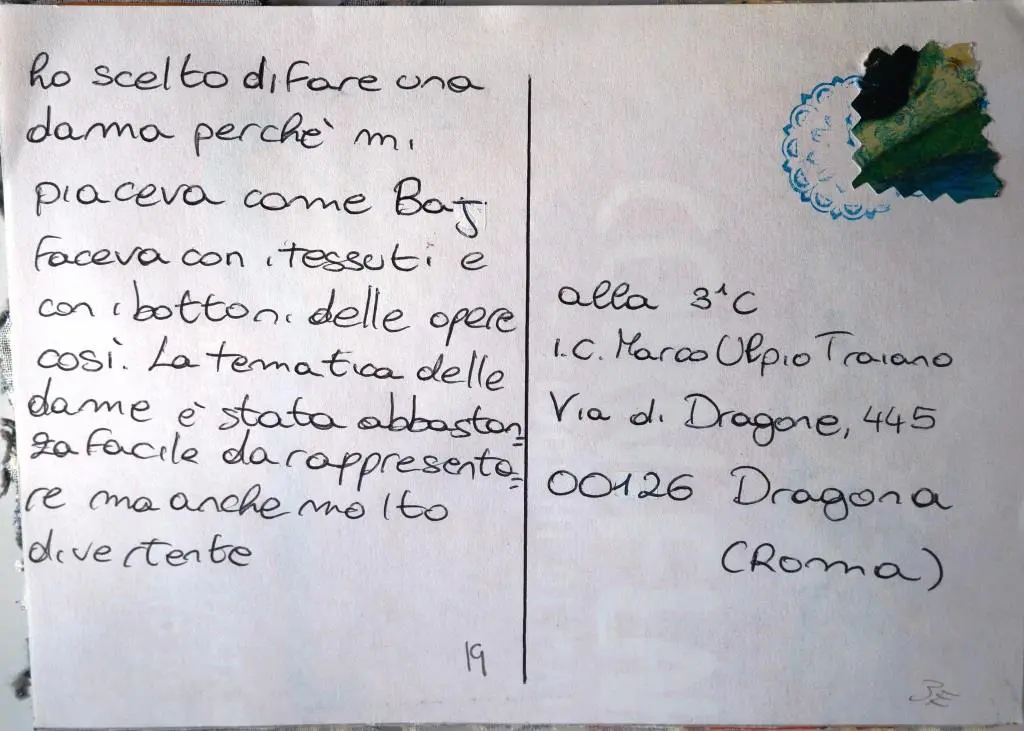 ho scelto di fare una
dama perchè mi
piaceva come Baj
faceva con i tessuti e
con i bottoni delle opere
così. La tematica delle
dame è stata abbastan=
za facile da rappresenta=
re ma anche molto
divertente
19
alla 3^C
I.C. Marco Ulpio Traiano
Via di Dragone, 445
00126 Dragona
(Roma)
3E